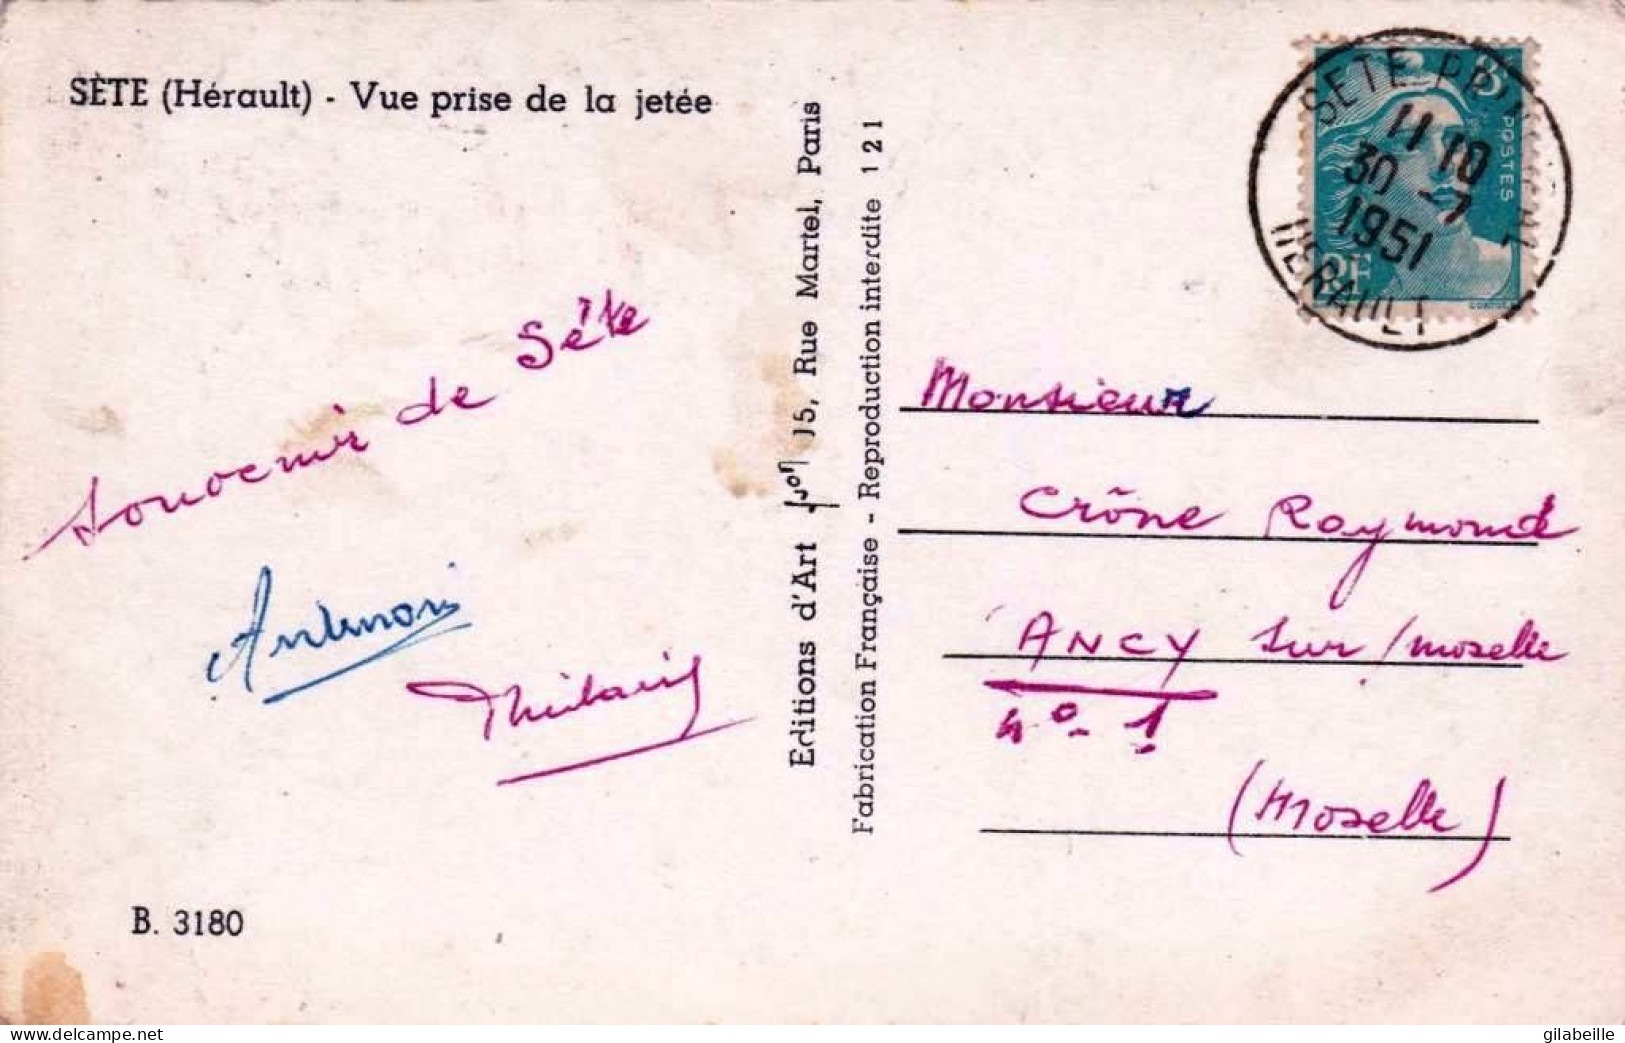 SÈTE (Hérault) - Vue prise de la jetée
Souvenir de Sète
B. 3180
Editions d'Art 15, Rue Martel, Paris
Fabrication Française - Reproduction interdite 121
POSTES
RF
SETE PPAL
11 10
30 -7
1951
HERAULT
Monsieur
Crône Raymond
ANCY sur/moselle
n° - 1
(Moselle)
www.delcampe.net
gilabeille